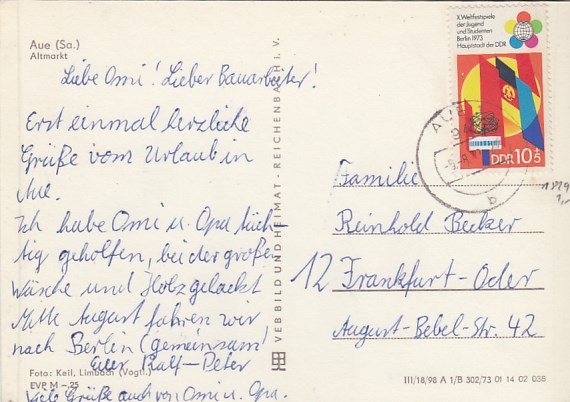 Aue (Sa.)
Altmarkt
Liebe Omi! Lieber Bauarbeiter!
Erst einmal herzliche
Grüße vom Urlaub in
Aue.
Ich habe Omi u. Opa tüch-
tig geholfen, bei der großen
Wäsche und Holz gehackt
Mitte August fahren wir
nach Berlin (gemeinsam)
Euer Ralf-Peter
Viele Grüße auch von Omi u. Opa.
Foto: Keil, Limbach (Vogtl.)
EVP M -,25
VEB BILD UND HEIMAT · REICHENBACH I. V.
X. Weltfestspiele
der Jugend
und Studenten
Berlin 1973
Hauptstadt der DDR
DDR 10+5
AUE
b
Familie
Reinhold Becker
12 Frankfurt-Oder
August-Bebel-Str. 42
III/18/98 A 1/B 302/73 01 14 02 038